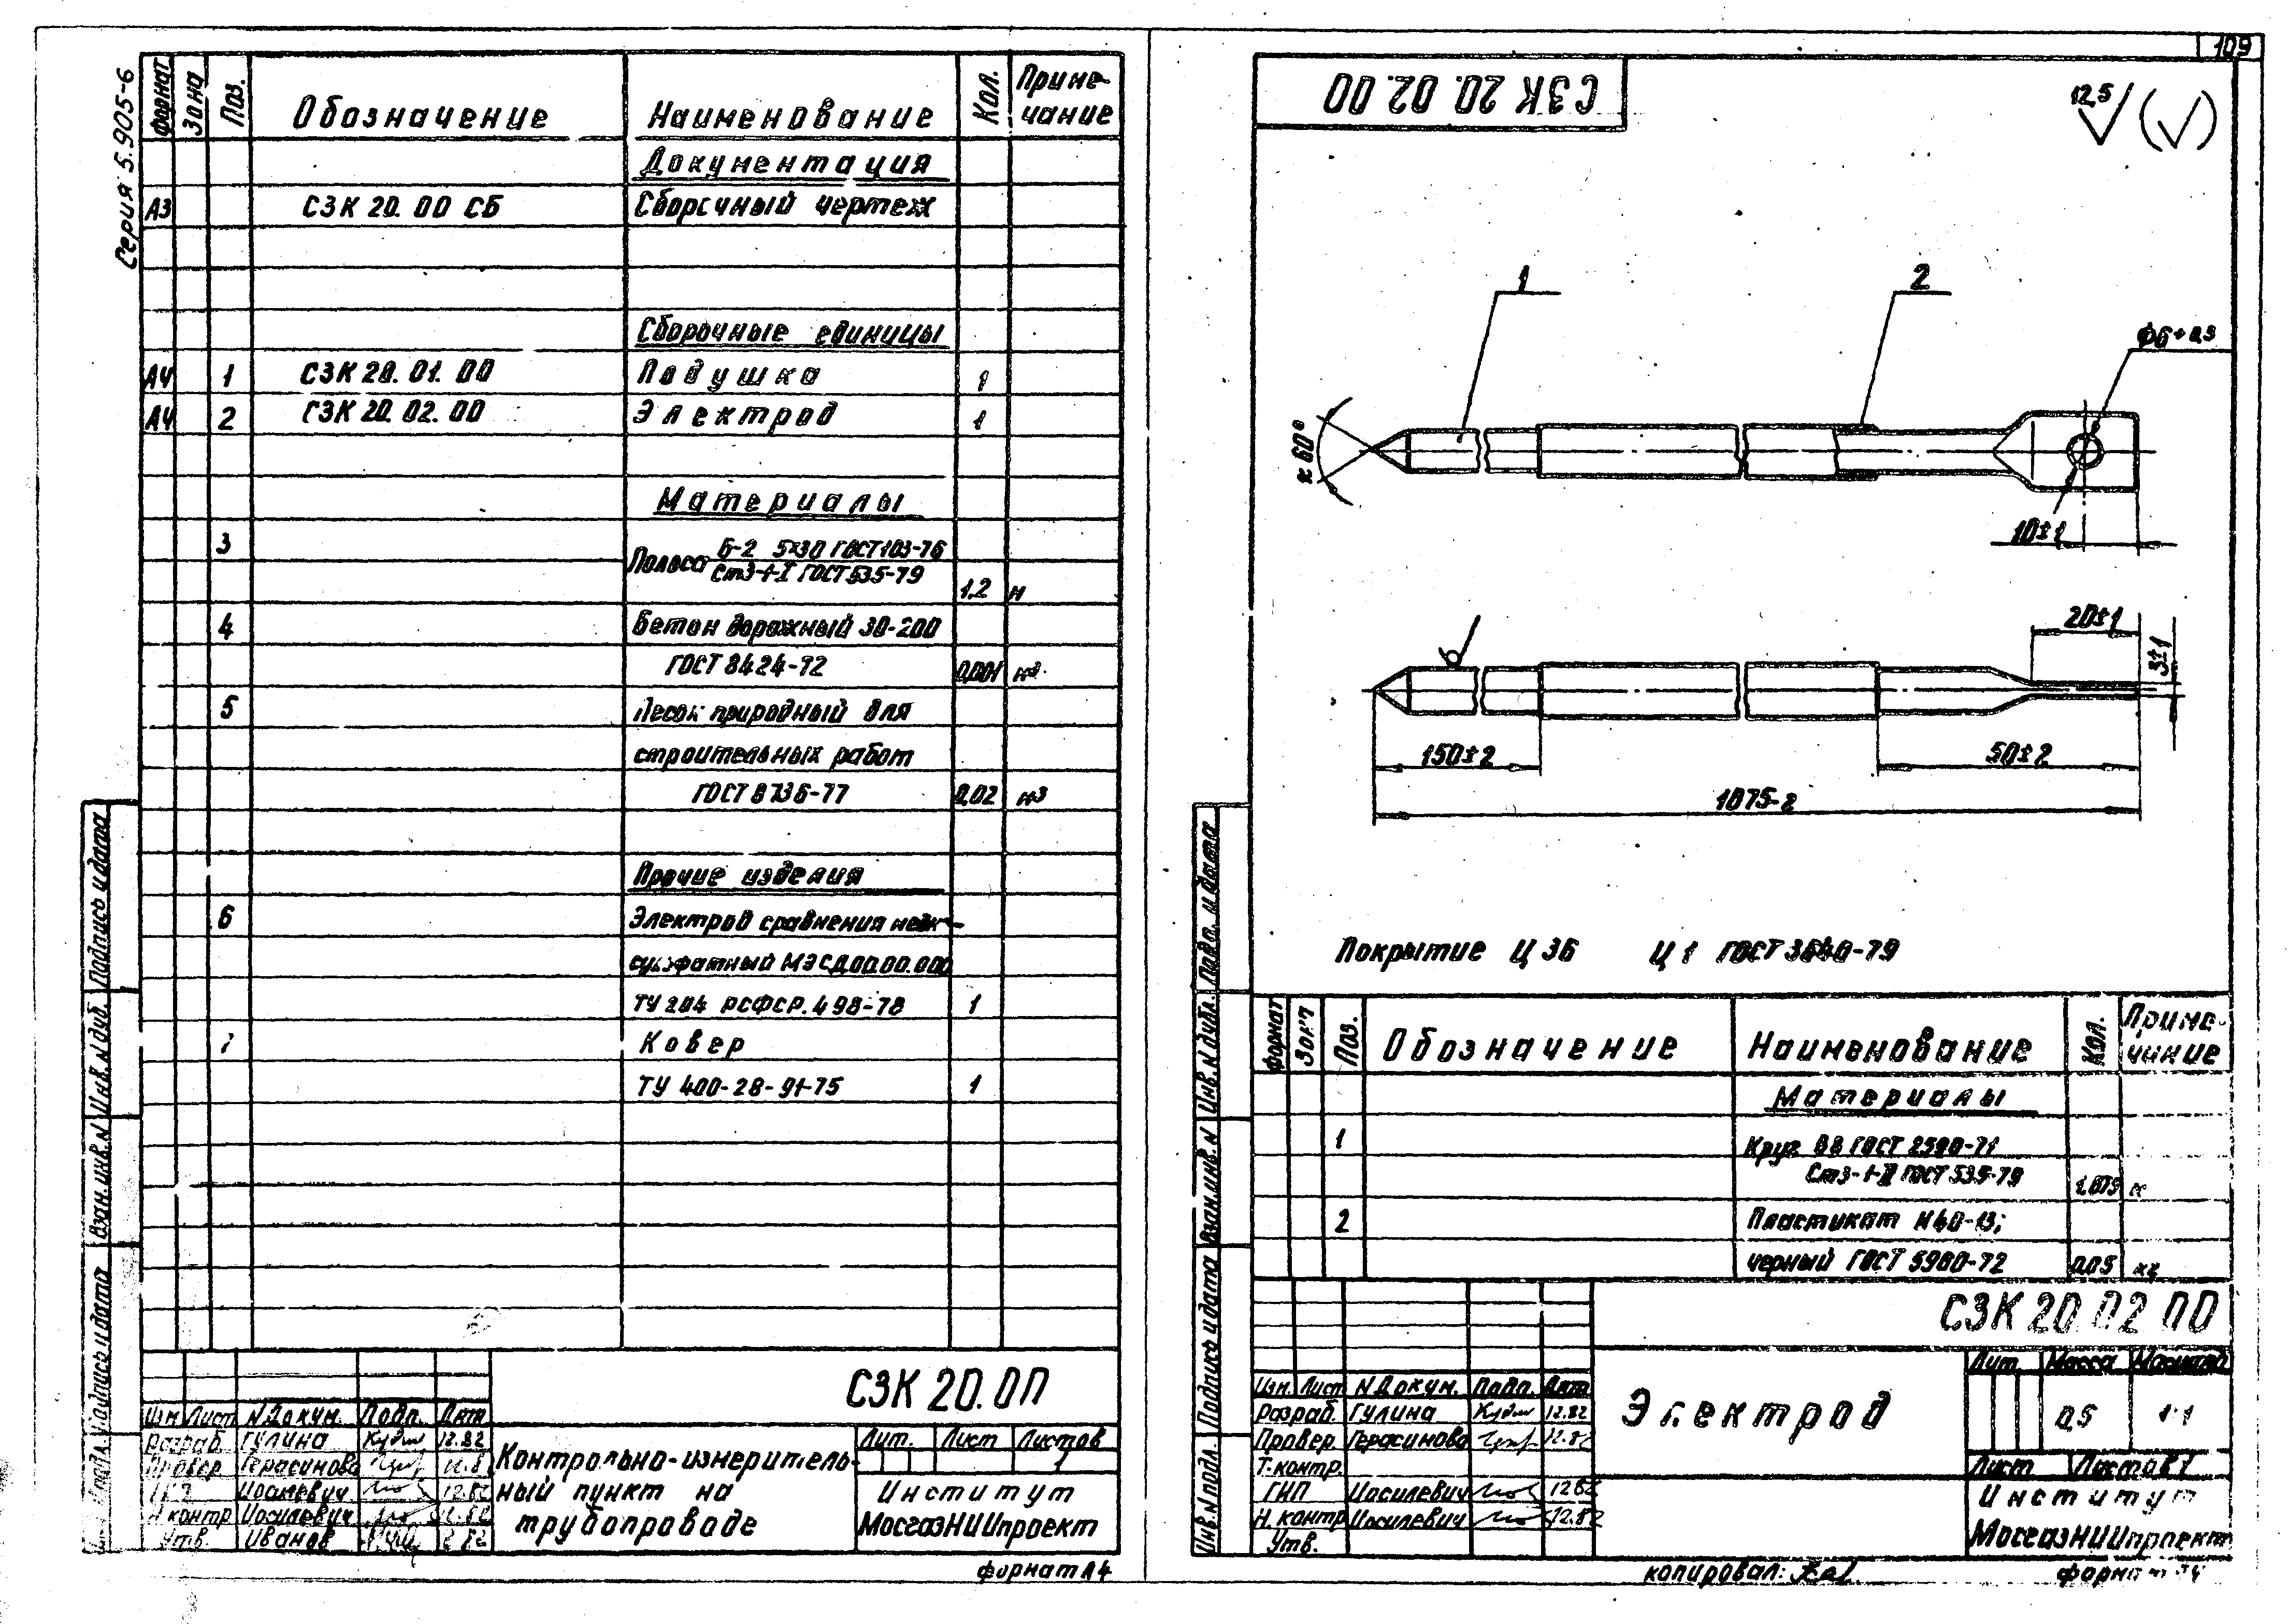 109
Серия 5.905-6
Формат Зона Поз. Обозначение Наименование Кол. Приме-
чание
Документация
А3 СЗК 20. 00 СБ Сборочный чертеж
Сборочные единицы
А4 1 СЗК 20. 01. 00 Подушка 1
А4 2 СЗК 20. 02. 00 Электрод 1
Материалы
3 Полоса Б-2 5×30 ГОСТ 103-76
Ст3-1-I ГОСТ 535-79
1,2 м
4 Бетон дорожный 30-200
ГОСТ 8424-72 0,001 м3
5 Песок природный для
строительных работ
ГОСТ 8736-77 0,02 м3
Прочие изделия
6 Электрод сравнения медно-
сульфатный МЭСД 00.00.000
ТУ 204 РСФСР. 498-78 1
7 Ковер
ТУ 400-28-91-75 1
Подпись и дата
Инв. N дубл.
Взам. инв. N
Подпись и дата
СЗК 20.00
Изм. Лист N Докум. Подп. Дата
Разраб. Гулина 12.82
Провер. Герасинова
Иосилевич 12.82
Н. контр. Иосилевич
Утв. Иванов
Контрольно-измеритель-
ный пункт на
трубопроводе
Лит. Лист Листов
1
Институт
МосгазНИИпроект
формат А4
СЗК 20. 02. 00
12,5
1
2
ϕ6+0,3
≈ 60°
10±1
20±1
3±1
150±2
50±2
1075-2
Покрытие Ц 36 Ц 1 ГОСТ 3640-79
Формат Зона Поз. Обозначение Наименование Кол. Приме-
чание
Материалы
1 Круг В8 ГОСТ 2590-71
Ст3-1-II ГОСТ 535-79
1,075 м
2 Пластикат И40-13;
черный ГОСТ 5960-72 0,05 кг
Подп. и дата
Инв. N дубл.
Взам. инв. N
Подпись и дата
Инв. N подл.
СЗК 20 02 00
Изм. Лист N Докум. Подп. Дата
Разраб. Гулина 12.82
Провер. Герасинова 12.82
Т. контр.
ГИП Иосилевич 12.82
Н. контр. Иосилевич 12.82
Утв.
Электрод
Лит. Масса Масштаб
0,5 1:1
Лист Листов 1
Институт
МосгазНИИпроект
копировал:
формат А4